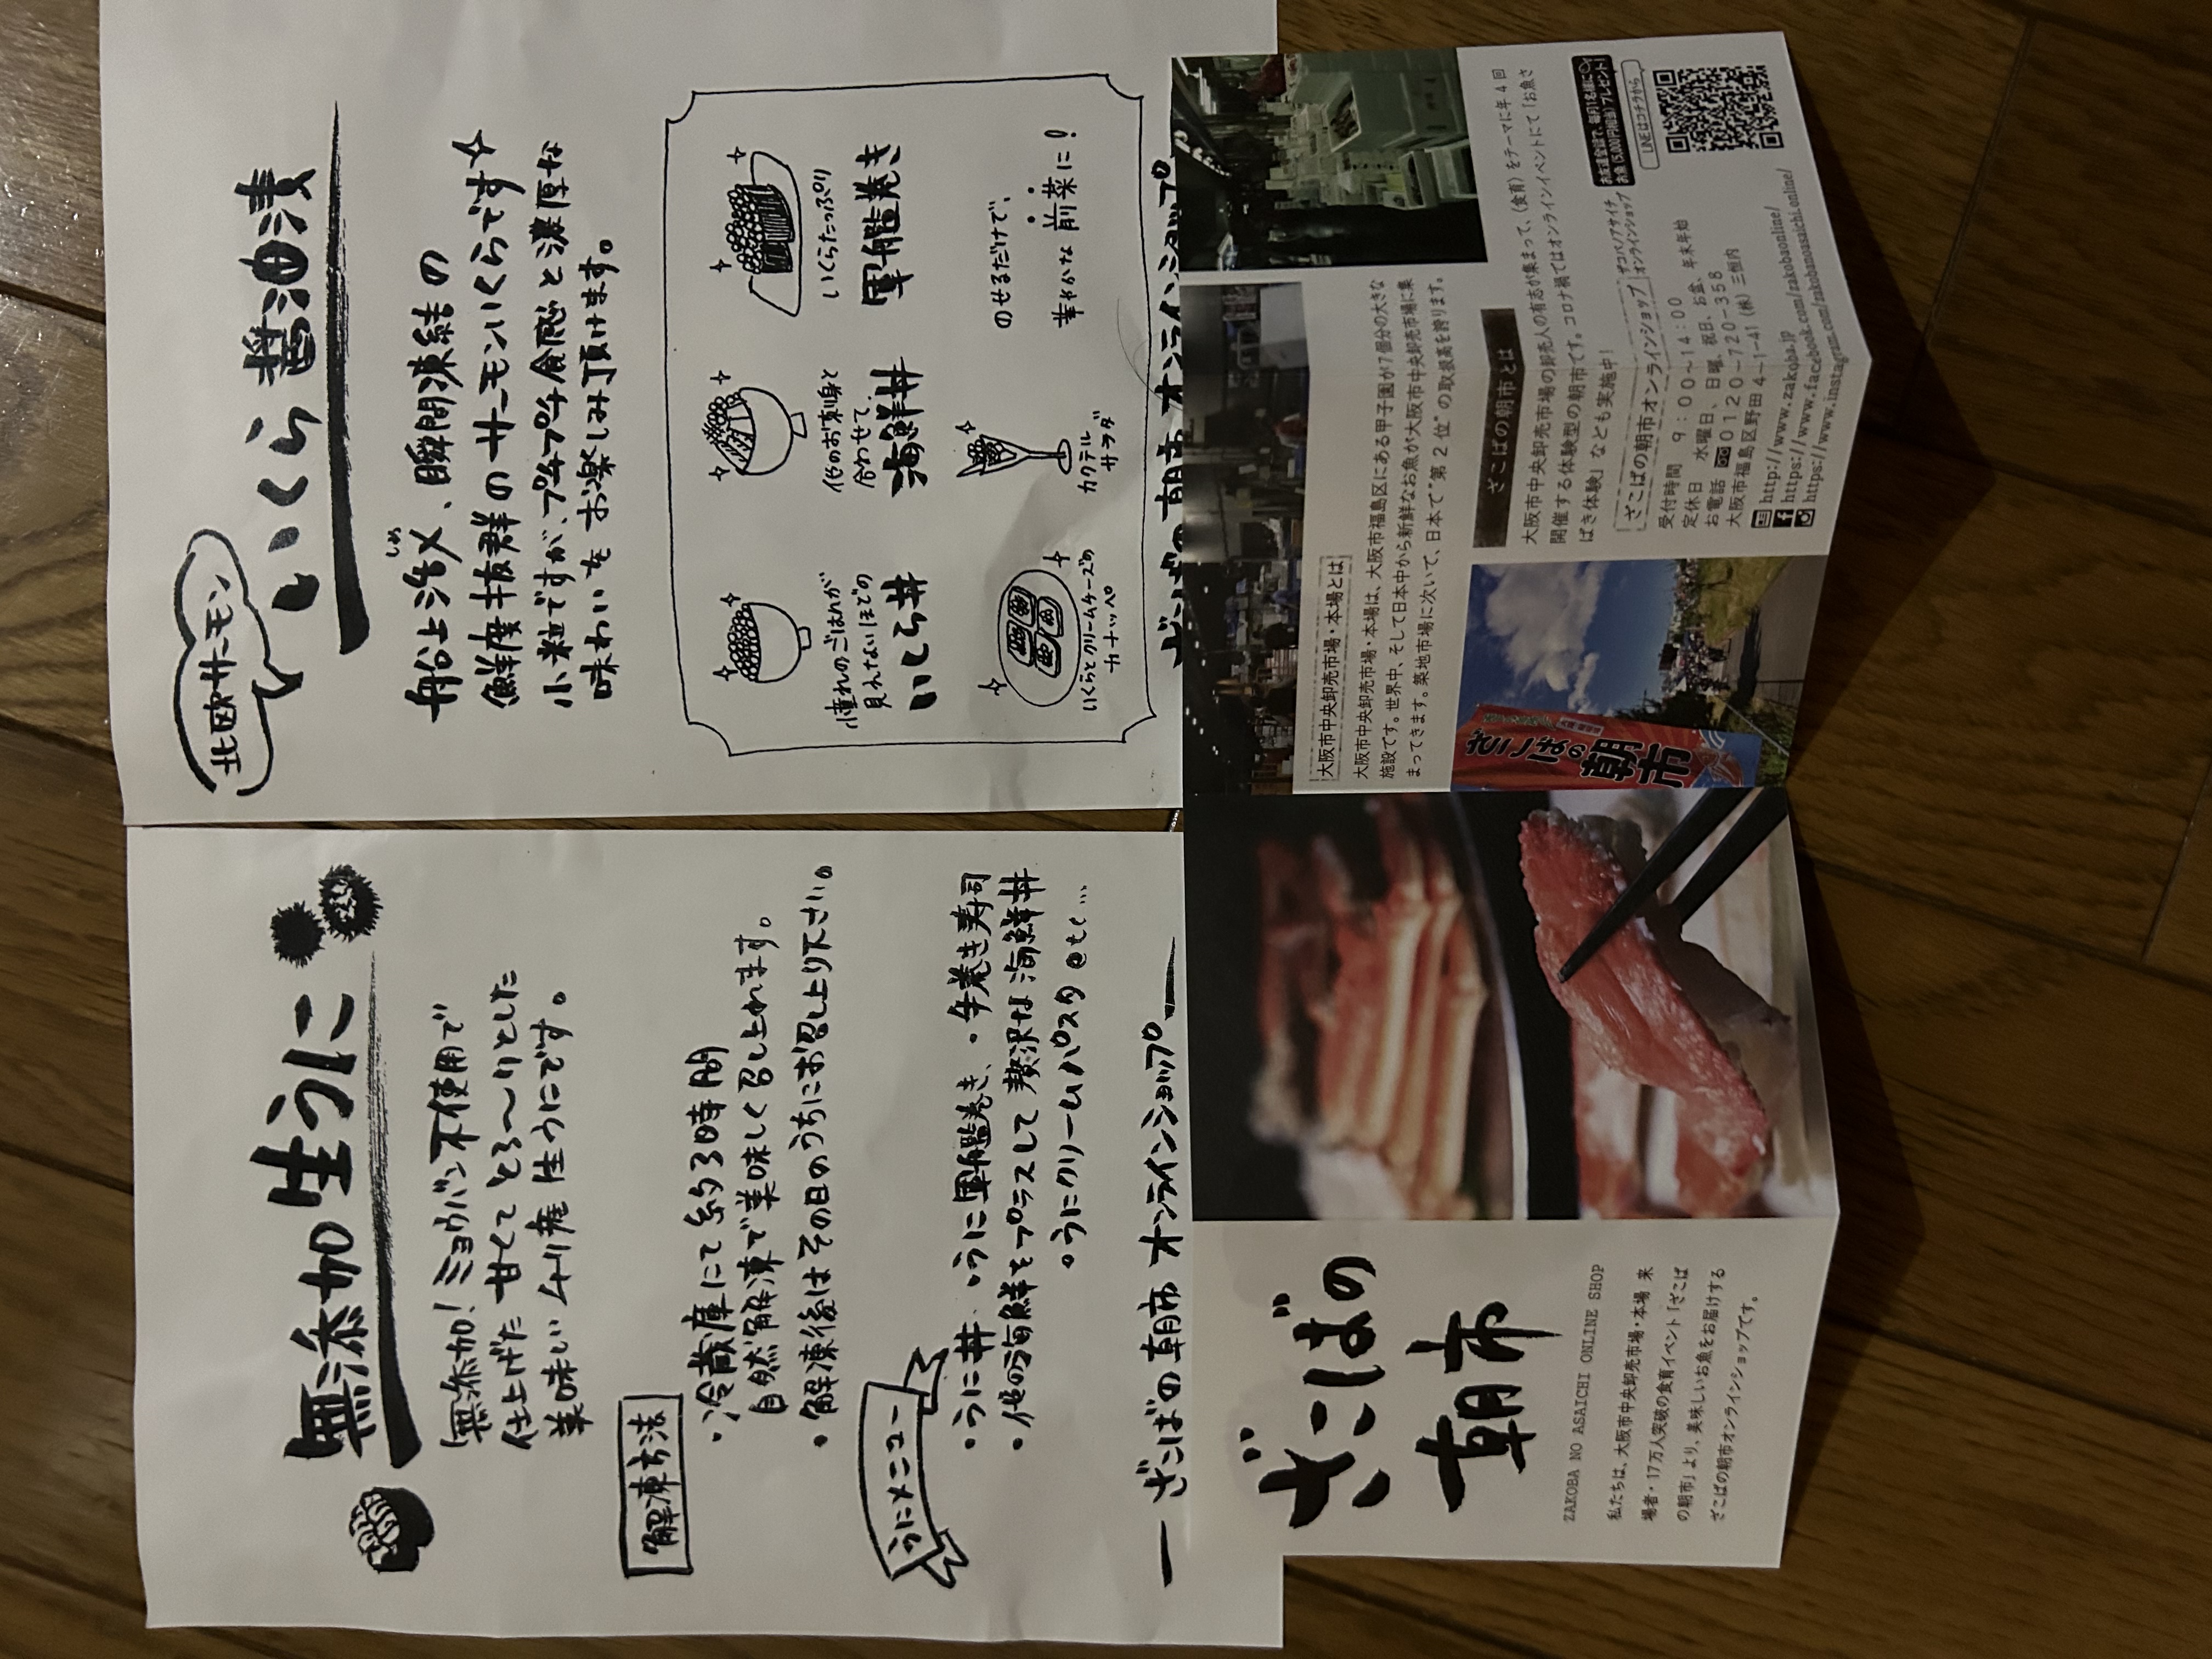 無添加 生うに
無添加！ミョウバン不使用で
仕上げた 甘くて とろ〜りとした
美味しい チリ産 生うにです。
解凍方法
・冷蔵庫にて約3時間
自然解凍で美味しく召し上れます。
・解凍後はその日のうちにお召し上り下さい。
うにメニュー
・うに丼、・うに軍艦巻き、・手巻き寿司
・他の海鮮をプラスして 贅沢な海鮮丼
・うにクリームパスタ etc...
ー ざこばの朝市 オンラインショップ ー
北欧サーモン
いくら醤油漬
しめ
船上活〆、瞬間凍結の
鮮度抜群のサーモンいくらです
小粒ですが、プチプチ食感と濃厚な
味わいをお楽しみ頂けます。
憧れのごはんが
見えないほどの
いくら丼
他のお刺身と
合わせて、
海鮮丼
いくらたっぷり
軍艦巻き
いくらとクリームチーズの
カナッペ
カクテル
サラダ
のせるだけで、
華やかな 前菜に！
ざこばの朝市 オンラインショップ
ざこばの
朝市
ZAKOBA NO ASAICHI ONLINE SHOP
私たちは、大阪市中央卸売市場・本場 来
場者・17万人突破の食育イベント「ざこば
の朝市」より、美味しいお魚をお届けする
ざこばの朝市オンラインショップです。
大阪市中央卸売市場・本場とは
大阪市中央卸売市場・本場は、大阪市福島区にある甲子園が7個分の大きな
施設です。世界中、そして日本中から新鮮なお魚が大阪市中央卸売市場に集
まってきます。築地市場に次いで、日本で“第2位”の取扱高を誇ります。
ざこばの
朝市
ざこばの朝市とは
大阪市中央卸売市場の卸売人の有志が集まって、〈食育〉をテーマに年4回
開催する体験型の朝市です。コロナ禍ではオンラインイベントにて「お魚さ
ばき体験」なども実施中！
ざこばの朝市オンラインショップ
ザコバノアサイチ
オンラインショップ
受付時間 9：00～14：00
定休日 水曜日、日曜、祝日、お盆、年末年始
お電話 0120-720-358
大阪市福島区野田4-1-41（株）三恒内
http://www.zakoba.jp
https://www.facebook.com/zakobaonline/
https://www.instagram.com/zakobanoasaichi.online/
お友達登録で、毎月1名様に
お魚（5,000円相当）プレゼント！
LINEはコチラから